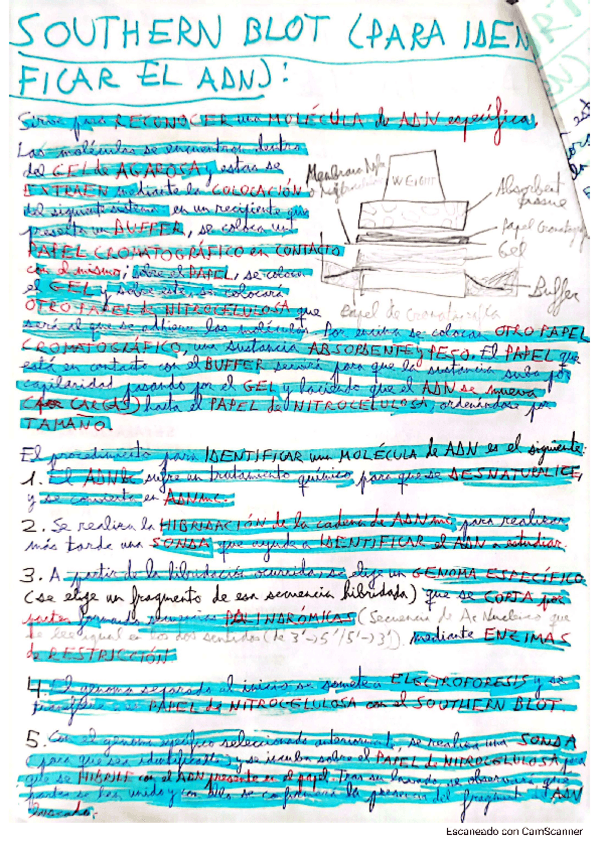 SOUTHERN BLOT (PARA IDEN
FICAR EL ADN):
Sirve para RECONOCER una MOLÉCULA de ADN específica
Las moléculas se encuentran dentro
del GEL de AGAROSA y estas se
EXTRAEN mediante la COLOCACIÓN
del siguiente sistema: en un recipiente que
presenta un BUFFER, se coloca un
PAPEL CROMATOGRÁFICO en CONTACTO
con el mismo; sobre el PAPEL, se coloca
el GEL y sobre este, se colocará
OTRO PAPEL de NITROCELULOSA que
será el que se adhieren las moléculas. Por encima se colocan OTRO PAPEL
CROMATOGRÁFICO, una sustancia ABSORBENTE y PESO. El PAPEL que
está en contacto con el BUFFER servirá para que la sustancia suba por
capilaridad pasando por el GEL y haciendo que el ADN se mueva
(por CARGAS) hasta el PAPEL de NITROCELULOSA, ordenándose por
TAMAÑO.
WEIGHT
Absorbent
tissue
Gel
Buffer
Papel de Cromatografía
El procedimiento para IDENTIFICAR una MOLÉCULA de ADN es el siguiente:
1. El ADNbc sufre un tratamiento químico para que se DESNATURALICE,
y se convierta en ADNmc.
2. Se realiza la HIBRIDACIÓN de la cadena de ADNmc para realizar
más tarde una SONDA que ayude a IDENTIFICAR el ADN a estudiar.
3. A partir de la hibridación ocurrida, se elige un GENOMA ESPECÍFICO
(se elige un fragmento de esa secuencia hibridada) que se CORTA por
partes formando secuencias PALINDRÓMICAS (Secuencia de Ac Nucleico que
se lee igual en los dos sentidos (de 3'→5'/5'→3') mediante ENZIMAS
de RESTRICCIÓN
4. El genoma separado al inicio se somete a ELECTROFORESIS y se
transfiere al PAPEL de NITROCELULOSA con el SOUTHERN BLOT
5. Con el genoma específico seleccionado anteriormente, se realiza una SONDA
(para que sea identificable) y se incuba sobre el PAPEL de NITROCELULOSA para
que se HIBRIDE con el ADN presente en el papel. Tras su lavado, se observará que
partes se han unido y con ello se confirmará la presencia del fragmento de ADN
buscado.
Escaneado con CamScanner